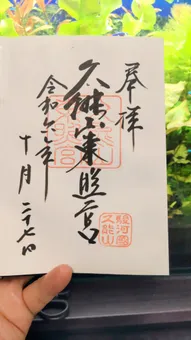 奉拝
久能山東照宮
令和六年
十月二十七日
駿河國
久能山